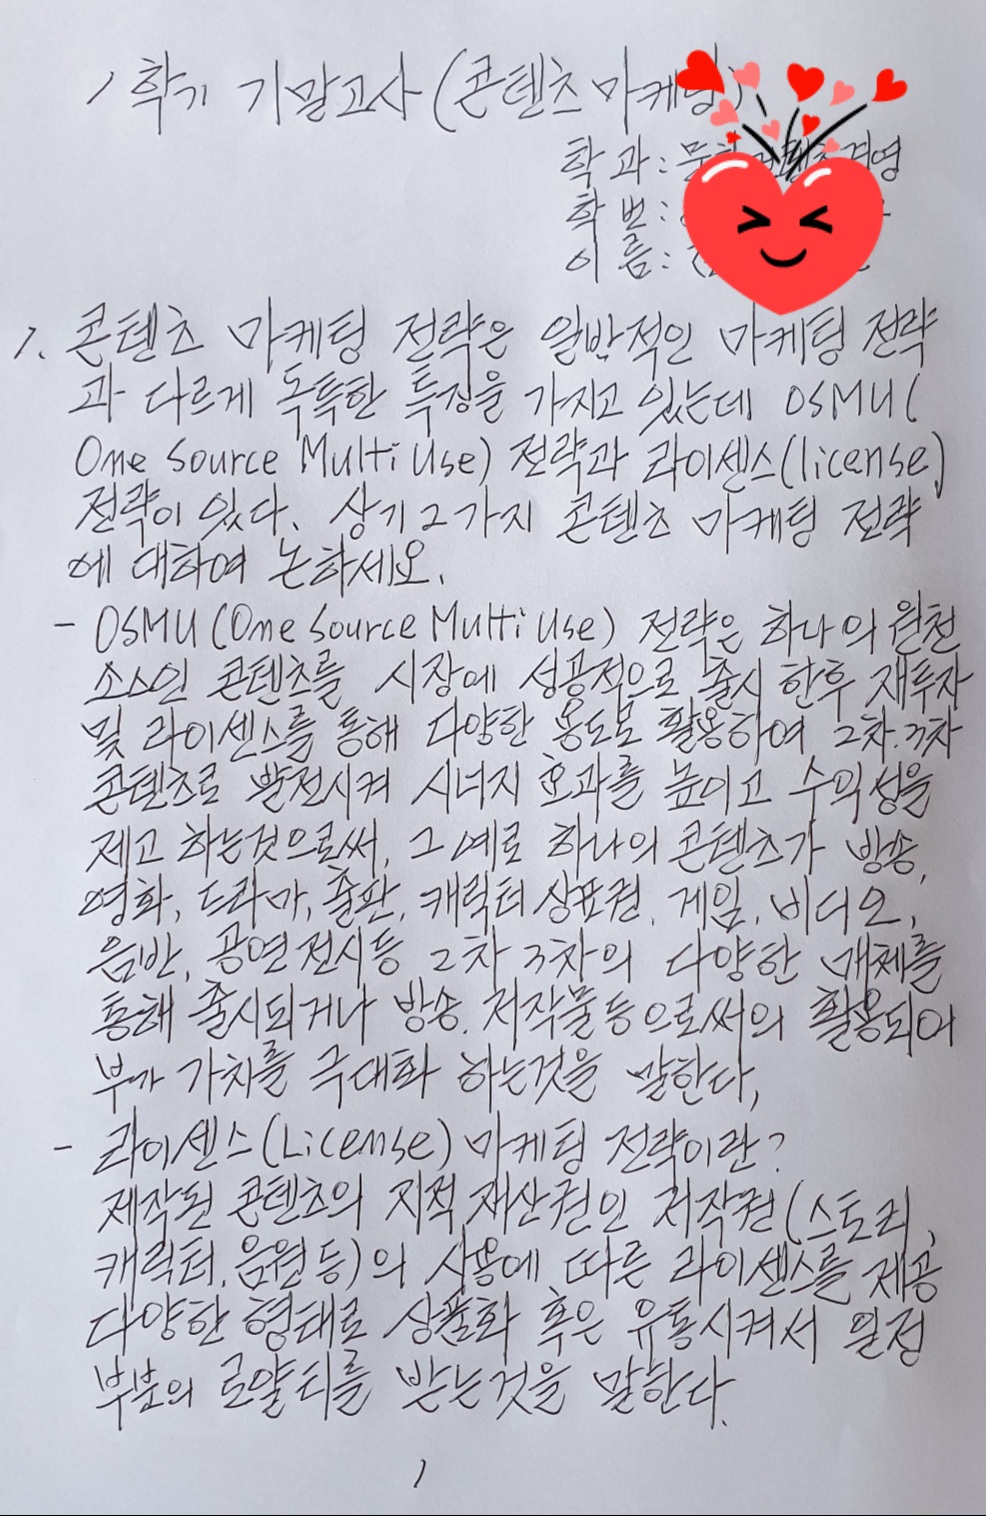 1학기 기말고사(콘텐츠 마케팅)
학과: 경영
학번:
이름:
1. 콘텐츠 마케팅 전략은 일반적인 마케팅 전략
과 다르게 독특한 특징을 가지고 있는데 OSMU(
One Source Multi Use) 전략과 라이센스(license)
전략이 있다. 상기 2가지 콘텐츠 마케팅 전략
에 대하여 논하세요.
- OSMU(One Source Multi Use) 전략은 하나의 원천
소스인 콘텐츠를 시장에 성공적으로 출시 한후 재투자
및 라이센스를 통해 다양한 용도로 활용하여 2차.3차
콘텐츠로 발전시켜 시너지 효과를 높이고 수익성을
제고 하는것으로써, 그 예로 하나의 콘텐츠가 방송,
영화, 드라마, 출판, 캐릭터 상표권, 게임, 비디오,
음반, 공연 전시등 2차 3차의 다양한 매체를
통해 출시되거나 방송. 저작물 등으로써의 활용되어
부가 가치를 극대화 하는것을 말한다,
- 라이센스(License) 마케팅 전략이란?
제작된 콘텐츠의 지적 재산권인 저작권(스토리,
캐릭터, 음원 등)의 사용에 따른 라이센스를 제공
다양한 형태로 상품화 혹은 유통시켜서 일정
부분의 로얄티를 받는것을 말한다.
1